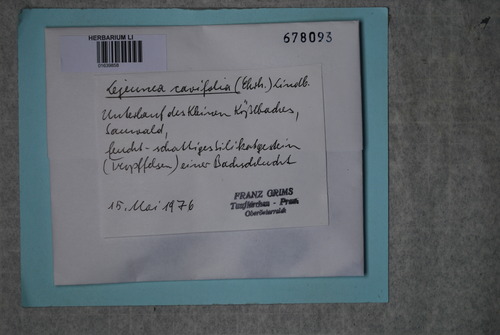 HERBARIUM LI
678093
Lejeunea cavifolia (Ehrh.) Lindb.
Unterlauf des Kleinen Kößlbaches,
Sauwald,
feucht-schattiges Silikatgestein
einer Bachschlucht
15. Mai 1976
FRANZ GRIMS
Taufkirchen - Pram
Oberösterreich